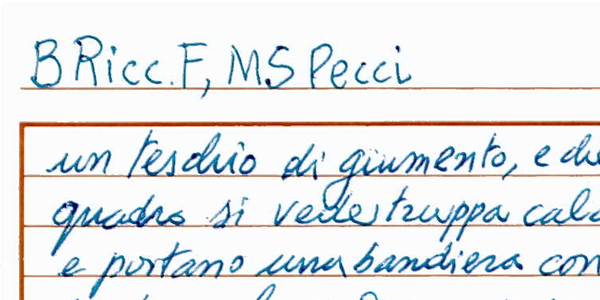 B Ricc. F, MS Pecci
un teschio di giumento, e che
quadro si vede truppa
e portano una bandiera con